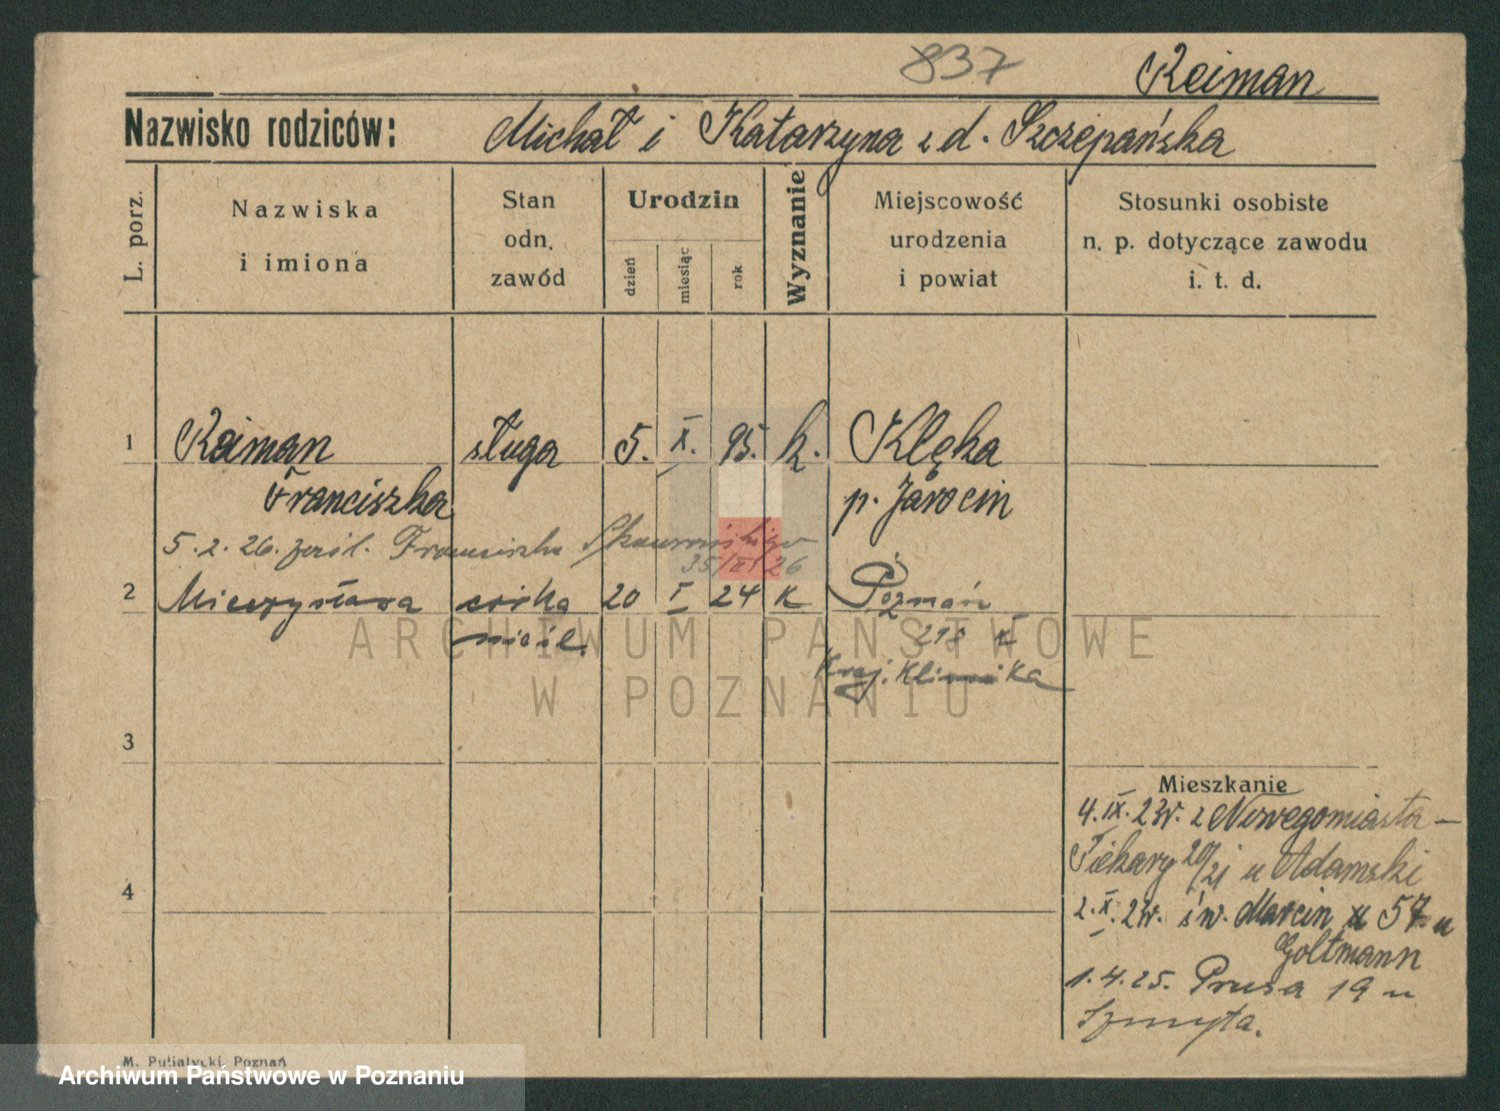 837 Reiman
Nazwisko rodziców: Michał i Katarzyna z d. Szczepańska
L. porz.
Nazwiska
i imiona
Stan
odn.
zawód
Urodzin
dzień
miesiąc
rok
Wyznanie
Miejscowość
urodzenia
i powiat
Stosunki osobiste
n. p. dotyczące zawodu
i. t. d.
1 Reiman sługa 5. X. 95. k. Klęka
Franciszka p. Jarocin
5. 2. 26. zaśl. Franciszka
35/II 26
2 Mieczysława córka 20 I 24 K Poznań
nieśl. 218 K
Kraj. Klinika
3
Mieszkanie
4. IX. 24. z Nowegomiasta –
Piekary 20/21 u Adamski
4
2. X. 24. św. Marcin 57. u
Goltmann
1. 4. 25. Prusa 19 u
Szmyta.
M. Putiatycki, Poznań
ARCHIWUM PAŃSTWOWE
W POZNANIU
Archiwum Państwowe w Poznaniu